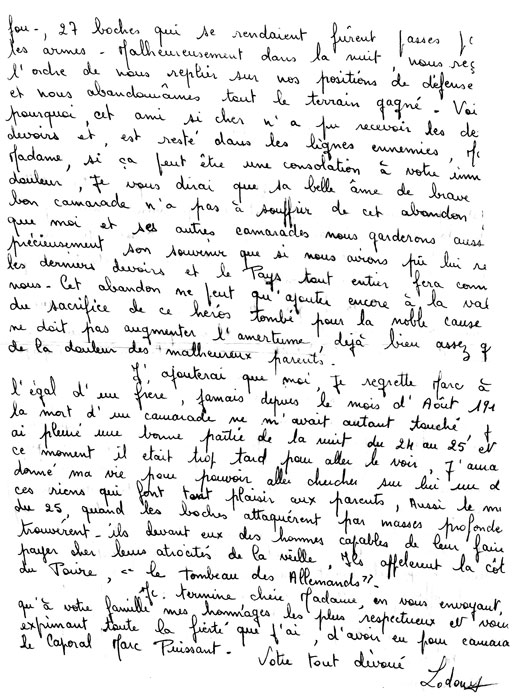 fou-, 27 boches qui se rendaient fûrent passés
les armes - Malheureusement dans la nuit, nous reç
l'ordre de nous replier sur nos positions de défense
et nous abandonnâmes tout le terrain gagné - Voi
pourquoi, cet ami si cher n'a pu recevoir les de
devoirs et, est resté dans les lignes ennemies,
Madame, si ça peut être une consolation à votre imm
douleur, Je vous dirai que sa belle âme de brave
bon camarade n'a pas à souffrir de cet abandon
que moi et ses autres camarades nous garderons auss
précieusement son souvenir que si nous avions pû lui re
les derniers devoirs et le Pays tout entier fera comm
nous - Cet abandon ne peut qu'ajouter encore à la val
du sacrifice de ce héros tombé pour la noble cause
ne doit pas augmenter l'amertume, déjà bien assez g
de la douleur des malheureux parents.
J'ajouterai que moi, Je regrette Marc à
l'égal d'un frère, jamais depuis le mois d'Août 191
la mort d'un camarade ne m'avait autant touché
ai pleuré une bonne partie de la nuit du 24 au 25 et
ce moment il était trop tard pour aller le voir, J'aura
donné ma vie pour pouvoir aller chercher sur lui un d
ces riens qui font tant plaisir aux parents, Aussi le m
du 25, quand les boches attaquérent par masses profonde
trouvèrent-ils devant eux des hommes capables de leur faire
payer cher leurs atrocités de la vieille, Ils appelerent la côt
du Poivre, "le Tombeau des Allemands".
Je termine chère Madame, en vous envoyant,
qu'à votre famille mes hommages les plus respectueux et vou
exprimant toute la fierté que j'ai, d'avoir eu pour camara
le Caporal Marc Puissant -
Votre tout dévoué